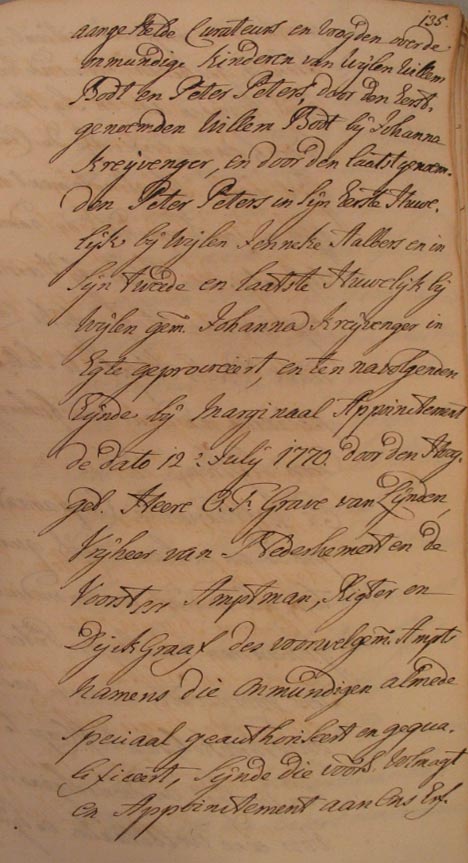 135
aangestelde Curateurs en vrogden over de
onmundige Kinderen van Wijlen Willem
Bodt en Peter Peters, door den Eerst-
genoemden Willem Bodt bij Johanna
Kreijvenger, en door den laatstgenoem-
den Peter Peters in Sijn Eerste Huwe-
lijk bij Wijlen Jenneke Aalbers en in
Sijn tweede en laatste Huwelijk bij
Wijlen gem. Johanna Kreijvenger in
Egte geprocreëert, en ten navolgenden
Eijnde bij Marginaal Appoinctement
de dato 12e Julij 1770. door den Hoog-
geb. Heere C. F. Grave van Lijnden,
Vrijheer van Nederhemert en de
Voorst, Amptman, Rigter en
Dijck Graaf des voorwelgem. Ampts
namens die Onmundigen almede
Speciaal geauthoriseert en gequa-
lificeert, Sijnde die voors. Volmagt
en Appoinctement aan Ons Erf-